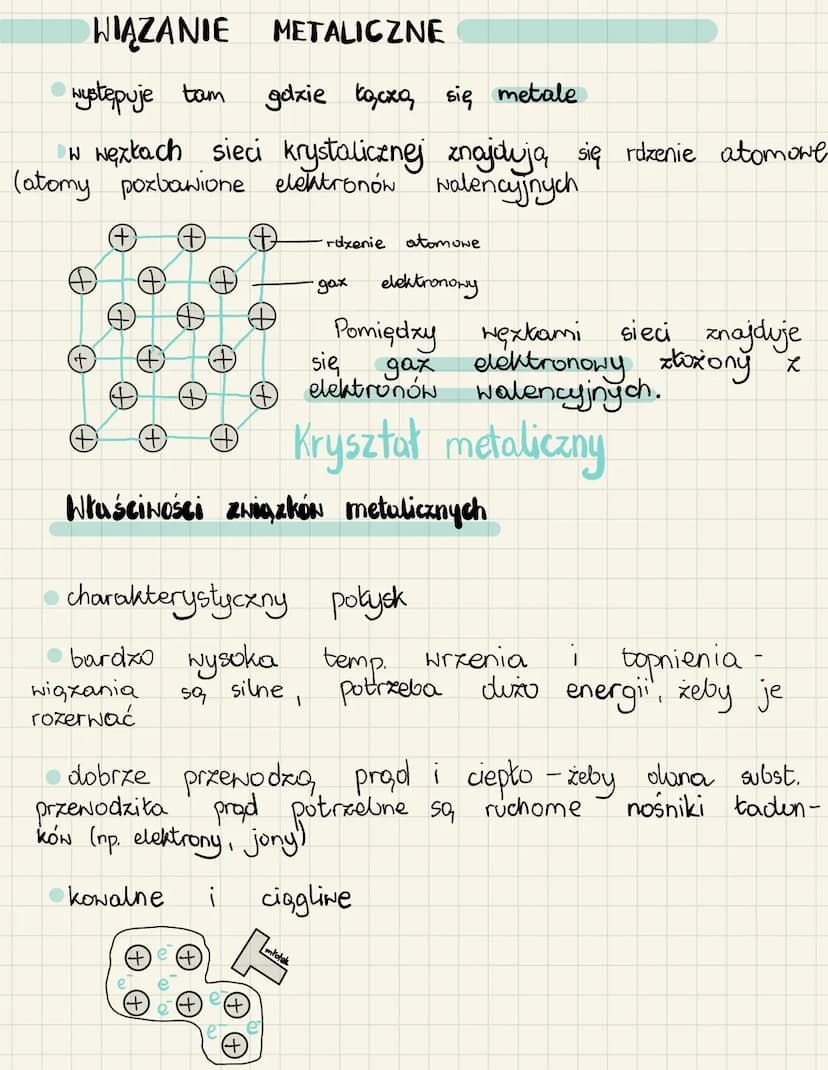 WIĄZANIE METALICZNE
występuje tam gdzie łączą się metale
w węzłach sieci krystalicznej znajdują się rdzenie atomowe
(atomy pozbawione elektronów walencyjnych
+ + +
rdzenie atomowe
+ + +
gaz elektronowy
+ + +
Pomiędzy węzłami sieci znajduje
się gaz elektronowy złożony z
elektronów walencyjnych.
+ + +
+ + +
+ + +
Kryształ metaliczny
Właściwości związków metalicznych
charakterystyczny połysk
bardzo wysoka temp. wrzenia i topnienia -
wiązania są silne, potrzeba dużo energii, żeby je
rozerwać
dobrze przewodzą prąd i ciepło - żeby dana subst.
przewodziła prąd potrzebne są ruchome nośniki ładun-
ków (np. elektrony, jony)
kowalne i ciągliwe
młotek
+ e- +
e- e-
+ e- + e- +
e- e-
+